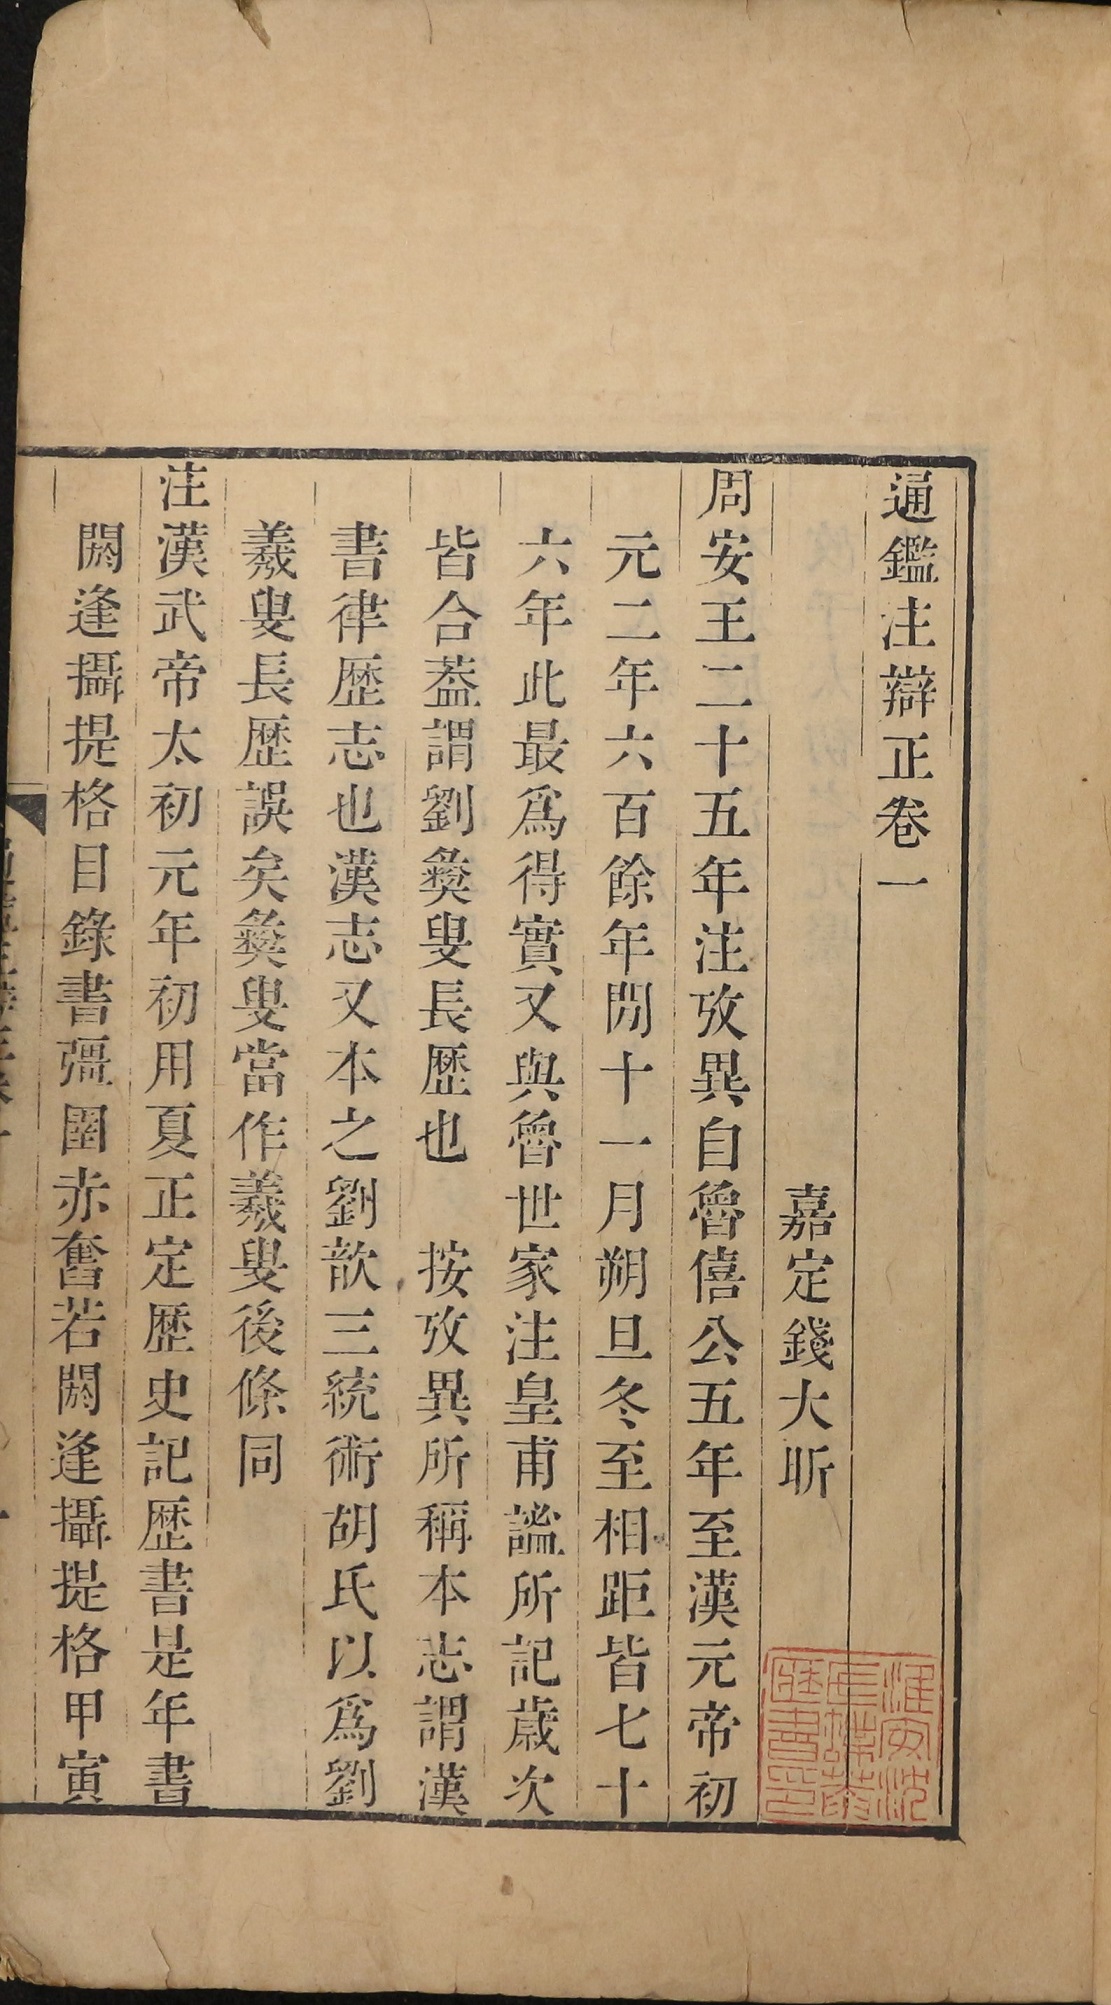 通鑑注辯正卷一
嘉定錢大昕
周安王二十五年注攷異自魯僖公五年至漢元帝初
元二年六百餘年閒十一月朔旦冬至相距皆七十
六年此最爲得實又與魯世家注皇甫謐所記歲次
皆合葢謂劉彝叟長歷也　按攷異所稱本志謂漢
書律歷志也漢志又本之劉歆三統術胡氏以爲劉
羲叟長歷誤矣彝叟當作羲叟後條同
注漢武帝太初元年初用夏正定歷史記歷書是年書
閼逢攝提格目錄書彊圉赤奮若閼逢攝提格甲寅
淮安沈
藏書印